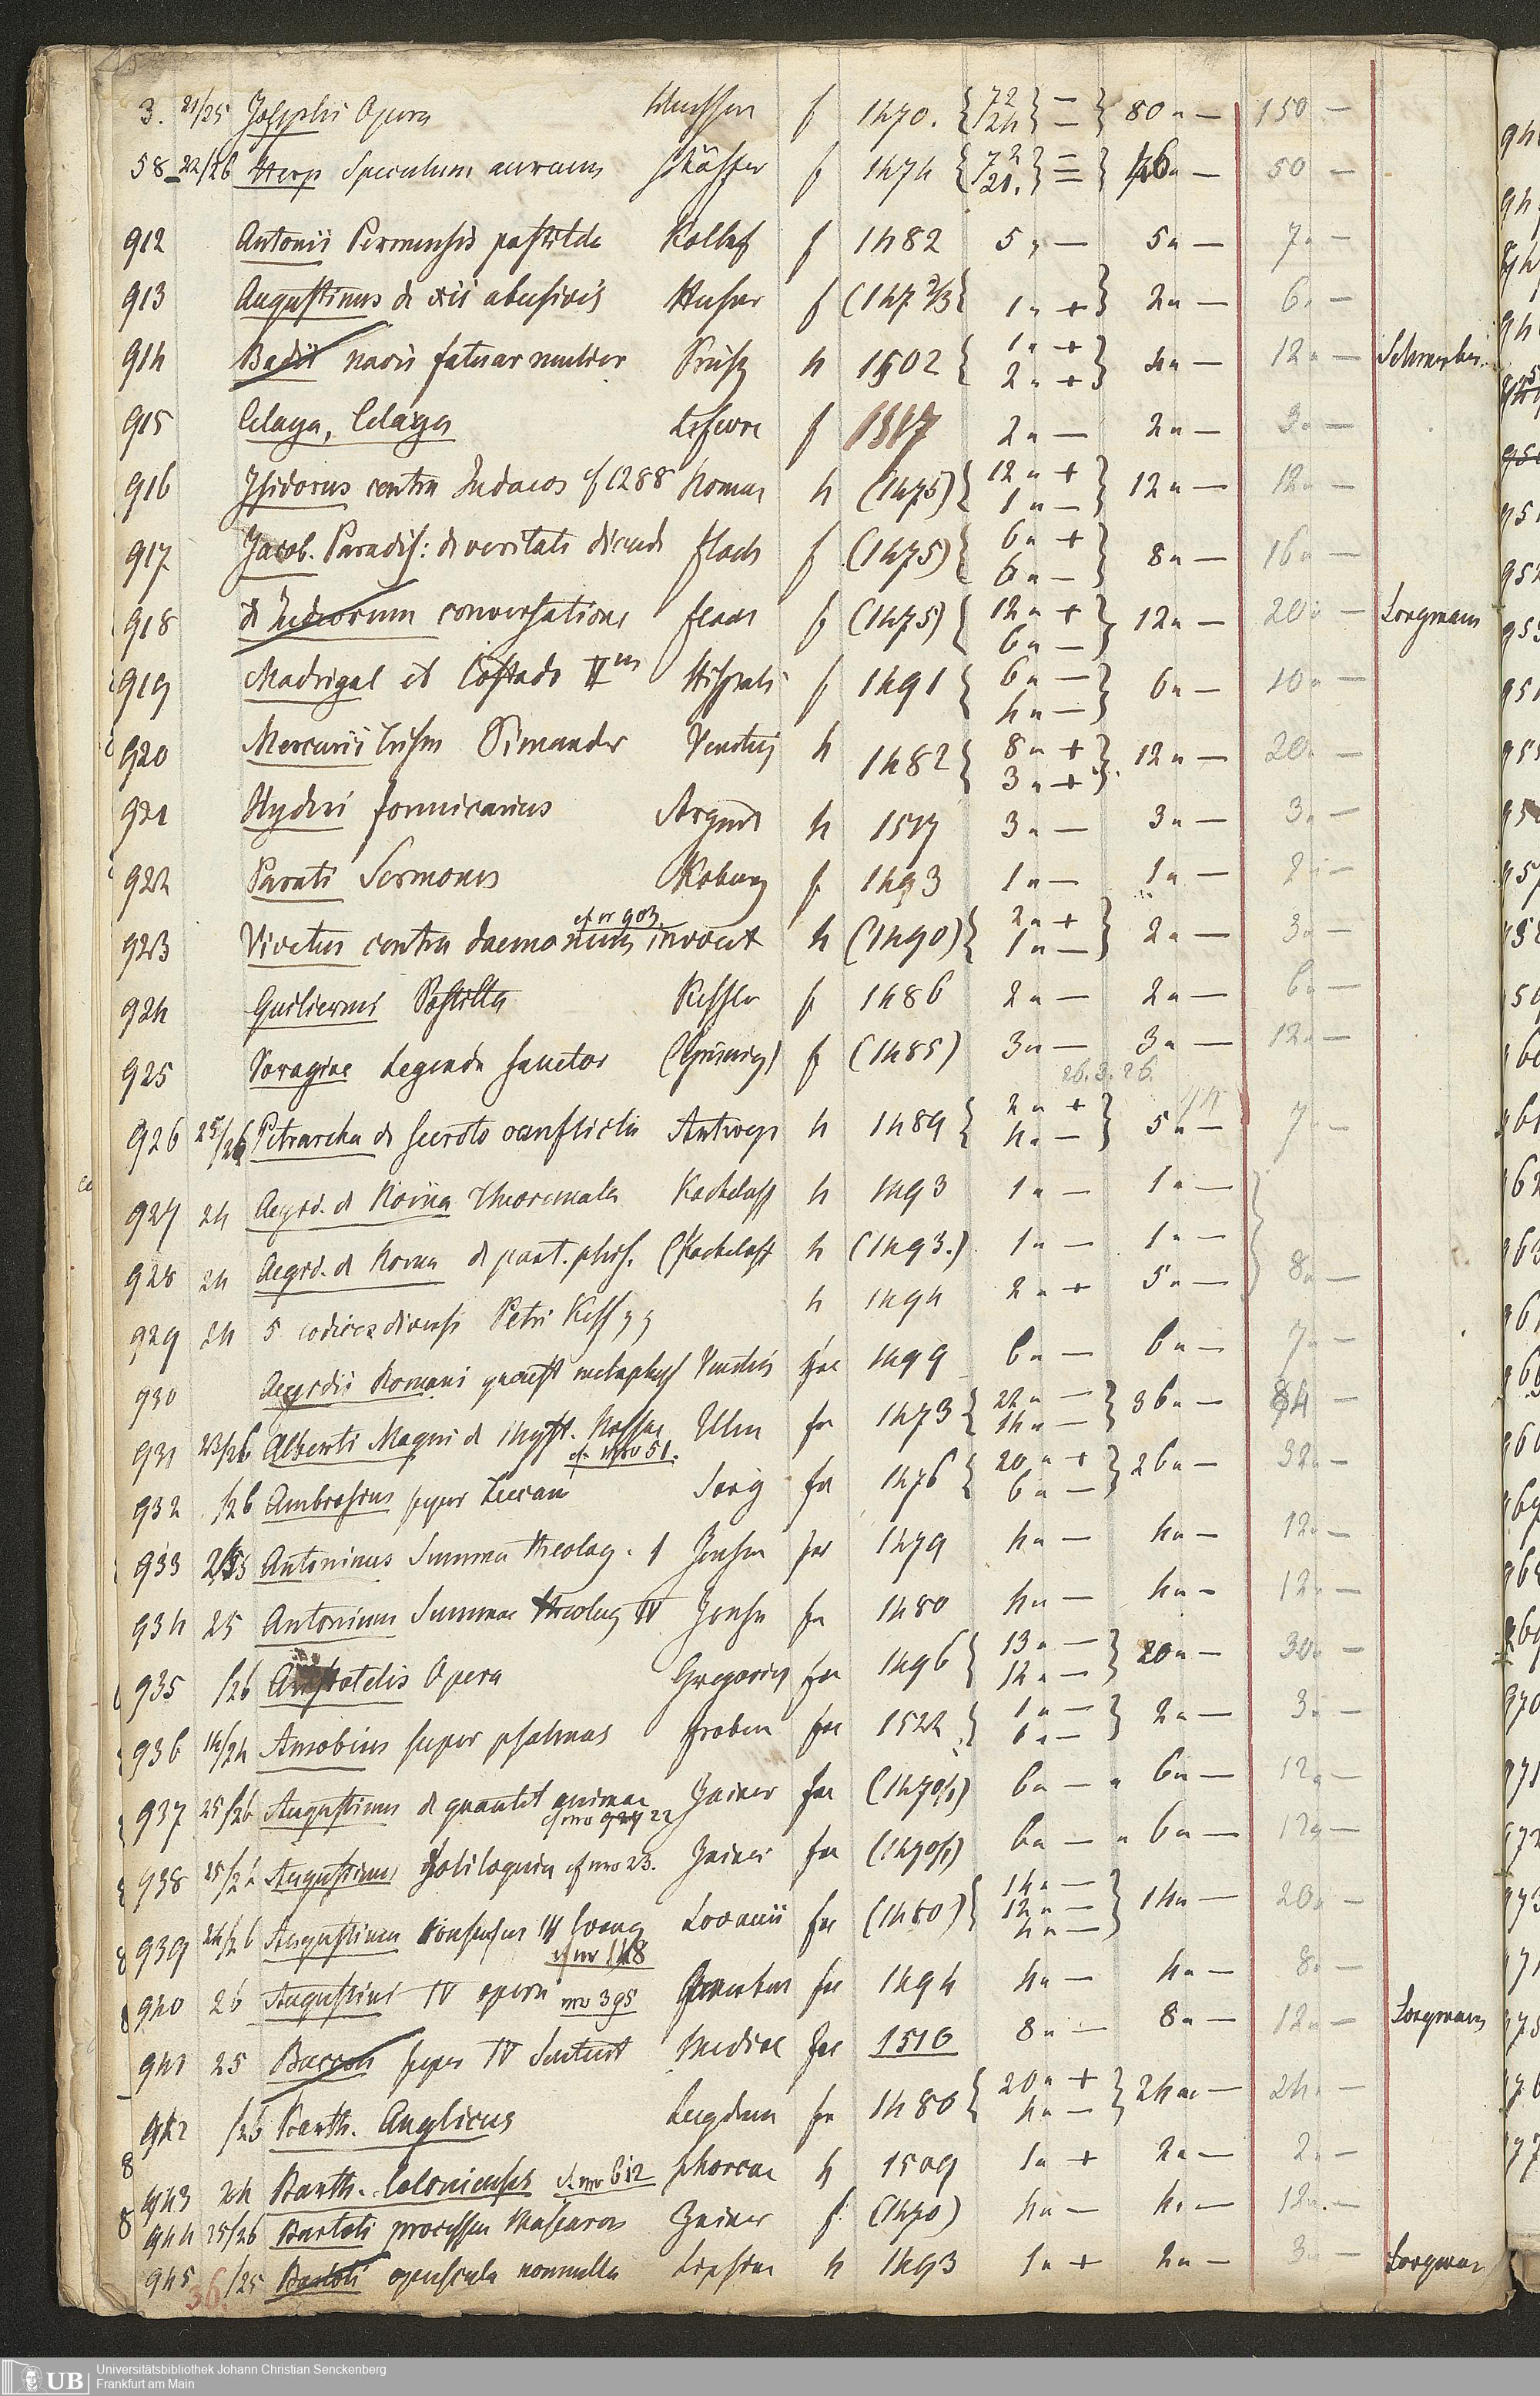 3. 21/25 Josephi Opera f 1470. { 72 — 24 — } 80 " — 150 —
58 22/26 Herp Speculum aureum f 1474 { 72 — 21. — } 46 " — 50 —
912 Antonii Parmensis postilla f 1482 5 " — 5 " — 7 " —
913 Augustinus de xii abusivis Husner f (147 2/3 { 1 " + } 2 " — 6 " —
914 Badii navis fatuar mulier Prüss 4 1502 { 1 " + 2 " + } 4 " — 12 " —
915 Celaya, Celaya Lefevre f 1517 2 " — 2 " — 3 " —
916 Isidorus contra Judaeos cf 1288 Homan 4 (1475) { 12 " + 1 " — } 12 " — 12 " —
917 Jacob. Paradis: de veritate dicenda Flach f (1475) { 6 " + 6 " — } 8 " — 16 " —
918 de Judeorum conversatione Flach f (1475) { 12 " + 6 " — } 12 " — 20 " — Longmans
919 Madrigal et Costado f 1491 { 6 " — 4 " — } 6 " — 10 " —
920 Mercurii Trism Pimander Venetiis 4 1482 { 8 " + 3 " + } 12 " — 20 " —
921 Nyderi formicarius Argent 4 1517 3 " — 3 " — 3 " —
922 Parati Sermones Koburg f 1493 1 " — 1 " — 2 " —
923 Vivetus contra daemonum invocat cf nr 903 4 (1490) { 2 " + 1 " — } 2 " — 3 " —
924 Guiliermi Postilla Kessler f 1486 2 " — 2 " — 6 " —
925 Voragine Legenda sanctor (Grüninger) f (1485) 3 " — 3 " — 12 " —
26. 3. 26.
926 25/26 Petrarcha de secreto conflictu Antwerp 4 1489 { 2 " + 4 " — } 5 " — 7 " —
927 24 Aegid. de Roma Theoremata Kacheloff 4 1493 1 " — 1 " —
928 24 Aegid. de Roma de part. phys. (Kacheloff 4 (1493.) 1 " — 1 " —
929 24 5 codices diversi Petri 4 1494 2 " + 5 " — 8 " —
930 Aegidii Romani quaest metaphys Venetiis fol 1499 6 " — 6 " — 7 " —
931 23/26 Alberti Magni de myst. Missae cf. nro 51. Ulm fo 1473 { 22 " — 14 " — } 36 " — 84 —
932 /26 Ambrosius super Lucam Sorg fo 1476 { 20 " + 6 " — } 26 " — 32 " —
933 25 Antoninus Summa theolog. 1 Jenson fo 1479 4 " — 4 " — 12 " —
934 25 Antoninus Summae theolog IV Jenson fo 1480 4 " — 4 " — 12 " —
935 /26 Aristotelis Opera Gregoriis fo 1496 { 13 " — 12 " — } 20 " — 30 " —
936 14/24 Arnobius super psalmos Froben fo 1522 { 1 " — 1 " — } 2 " — 3 " —
937 25/26 Augustinus de quantit animae cf nro 22 Zainer fo (1470/1) 6 " — 6 " — 12 " —
938 25/26 Augustinus Soliloquia cf nro 23. Zainer fo (1470/1) 6 " — 6 " — 12 " —
939 24/26 Augustinus consensus IV Evang cf nr 148 Lovanii fo (1480) { 14 " — 12 " — 4 " — } 14 " — 20 " —
940 26 Augustini IV opera nro 395 fo 1494 4 " — 4 " — 8 " —
941 25 Baccon super IV Sentent Mediol fo 1510 8 " — 8 " — 12 " — Longmans
942 /26 Barth. Anglicus Lugduni fo 1480 { 20 " + 4 " — } 24 " — 24 " —
943 24 Barth. Coloniensis cf. nro 612 Phorcae 4 1509 1 " + 2 " — 2 " —
944 25/26 Bartoli processus Mascaron Zainer f (1470) 4 " — 4 " — 12 " —
945 /25 Bartoli opuscula nonnulla Lipsiae 4 1493 1 " + 2 " — 3 " — Longman
36.
UB Universitätsbibliothek Johann Christian Senckenberg
Frankfurt am Main